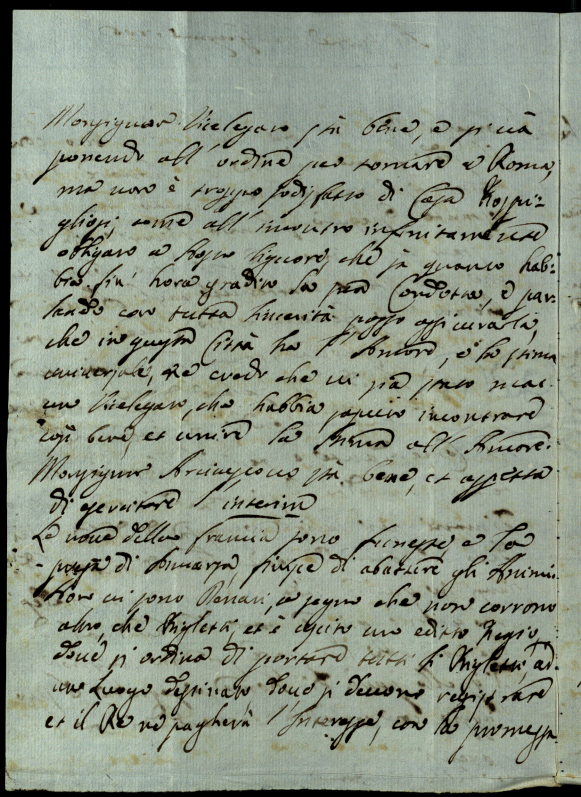 Monsignor Vicelegato sta bene, e si và
ponendo all' ordine per tornare à Roma,
ma non è troppo sodisfatto di Casa Rospi-
gliosi, come all' incontro infinitamente
obligato a Vostro Signore, che
bia fin' hora gradito la sua Condotta, e par-
lando con tutta sincerità posso assicurarla,
che in questa Città ha l' Amore, e la stima
universale, nè credo che vi sia stato mai
un Vicelegato, che habbia saputo incontrare
così bene, et unire la stima all' Amore:
Monsignor Arcivescovo sta bene, et aspetta
di esercitare interim
Le nuove della Francia sono funeste, e la
di finisce di abattere gli Animi
non vi sono Denari, a segno che non corrono
altro, che Biglietti, et è uscito un editto Regio,
dove si ordina di portare tutti li Biglietti, ad
un Luogo destinato dove si devono registrare
et il Re ne pagherà l' Interesse, con la promessa